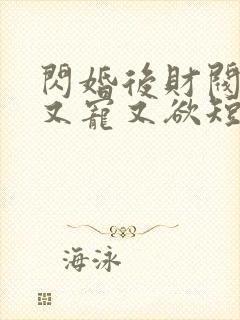 閃婚後財閥
又寵又欲短
海泳